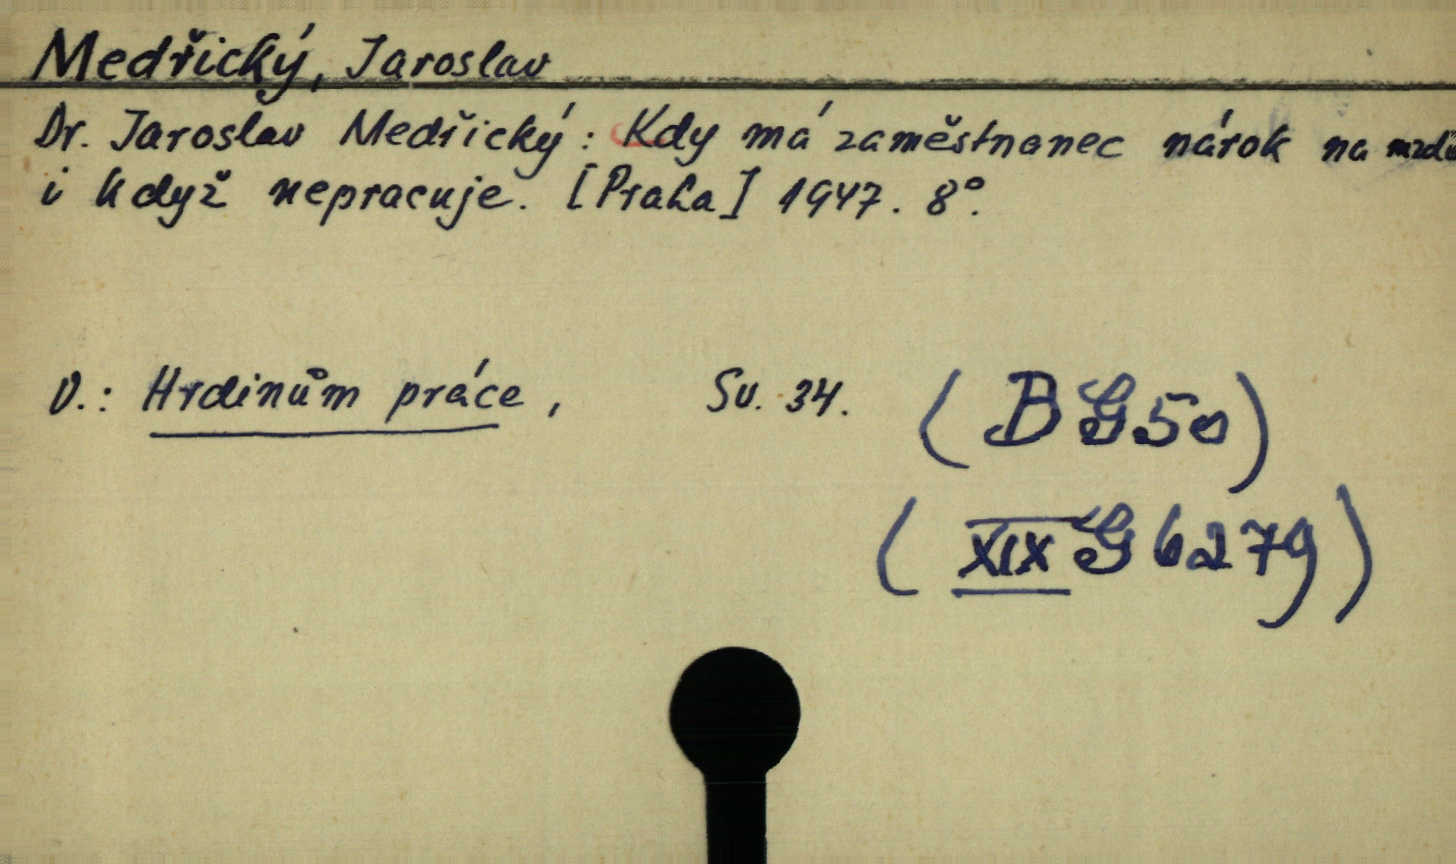 Medřický, Jaroslav
Dr. Jaroslav Medřický: Kdy má zaměstnanec nárok na mzdu
i když nepracuje. [Praha] 1947. 8°.
V.: Hrdinům práce, Sv. 34. (B G 50)
(XIX G 6279)